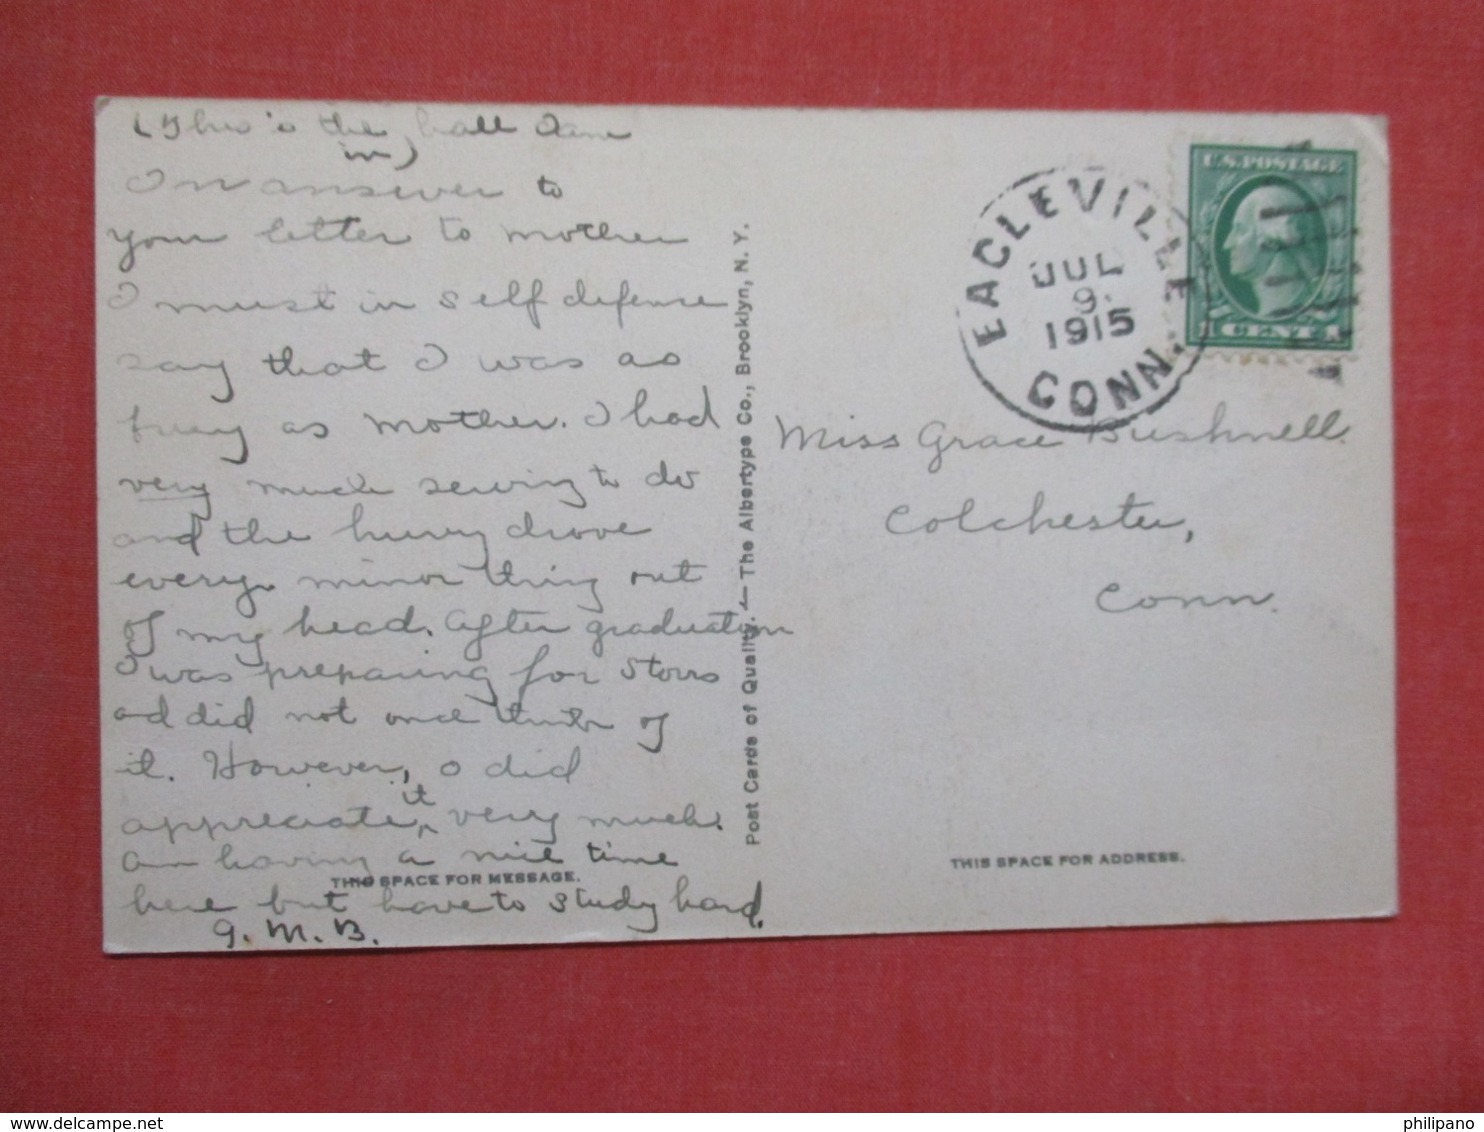 (This is the hall I am
in)
In answer to
your letter to mother
I must in self defense
say that I was as
busy as mother. I had
very much sewing to do
and the hurry drove
every minor thing out
of my head. After graduation
I was preparing for Storrs
and did not once think of
it. However, I did
appreciate it very much.
Am having a nice time
here but have to study hard.
G. M. B.
THIS SPACE FOR MESSAGE.
Post Cards of Quality. — The Albertype Co., Brooklyn, N. Y.
EAGLEVILLE
JUL
9.
1915
CONN.
U.S. POSTAGE
1 CENT 1
Miss Grace Bushnell.
Colchester,
Conn.
THIS SPACE FOR ADDRESS.
delcampe.net
philipano